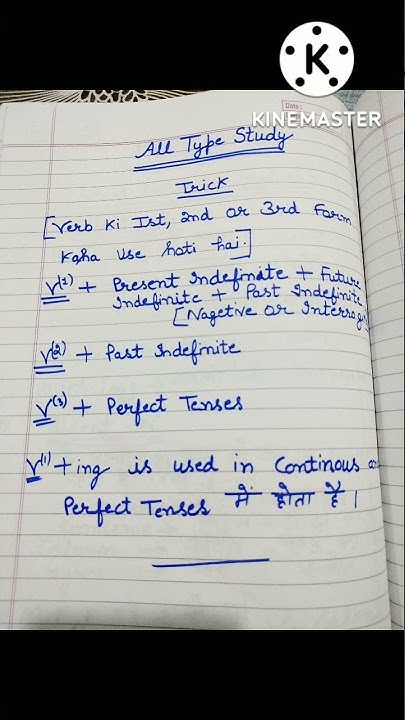 KINEMASTER
Date :
All Type Study
Trick
[Verb Ki Ist, 2nd or 3rd Form
Kaha Use hoti hai.]
V(1) + Present Indefinate + Future
Indefinite + Past Indefinite
[Nagetive or Interrog
V(2) + Past Indefinite
V(3) + Perfect Tenses
V(1) + ing is used in Continous
Perfect Tenses में होता है ।